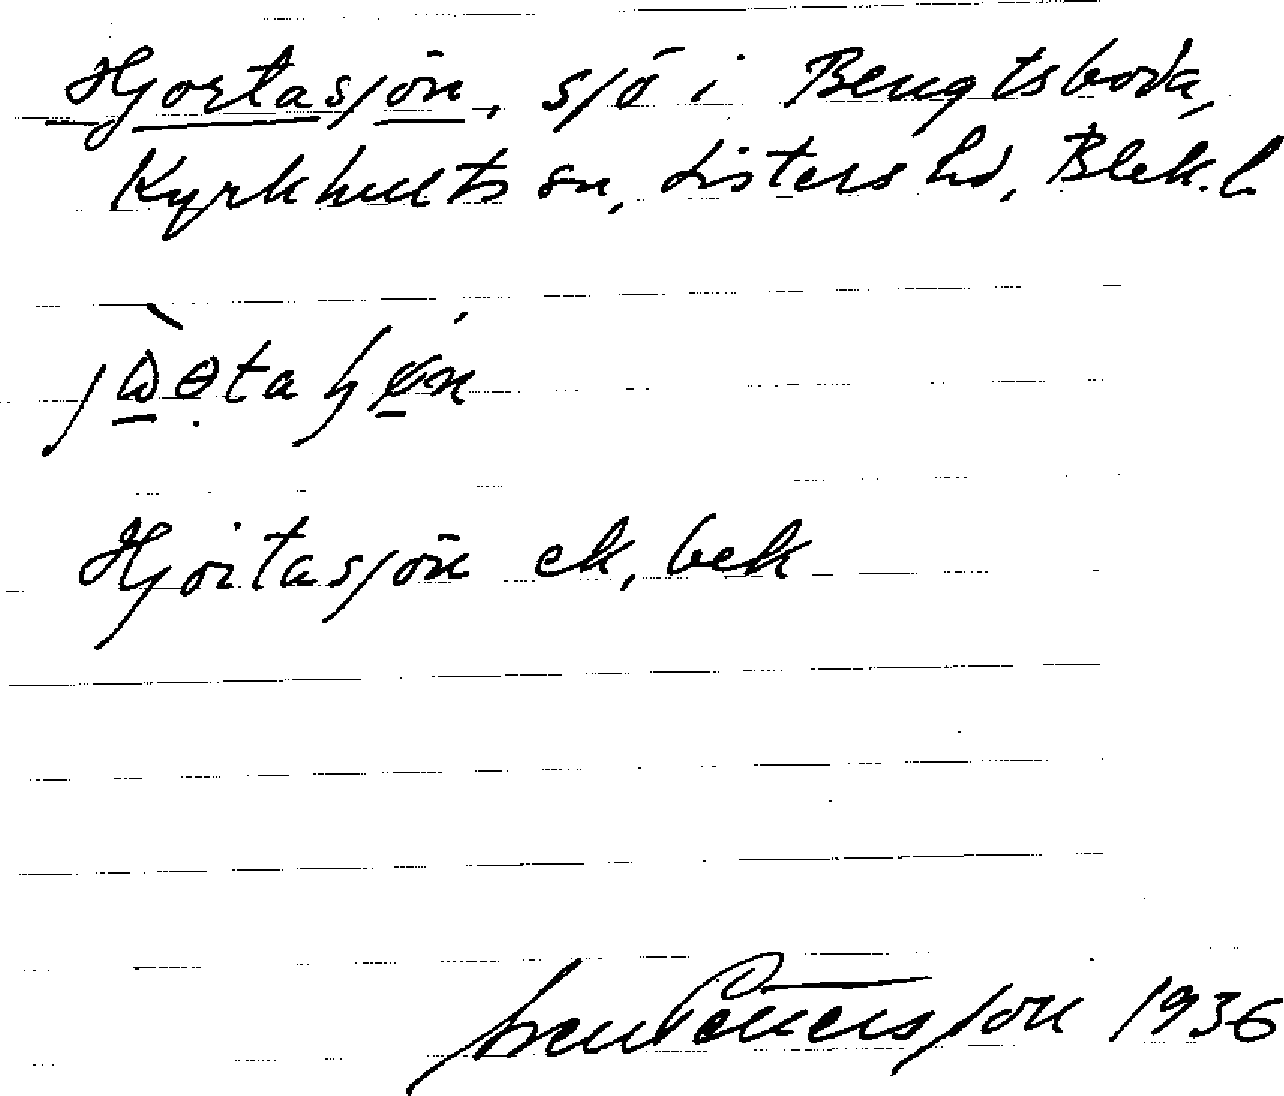 Hjortasjön, sjö i Bengtsboda,
Kyrkhults sn, Listers hd, Blek. l.
Hjortasjön ek, bek
Sven Pettersson 1936